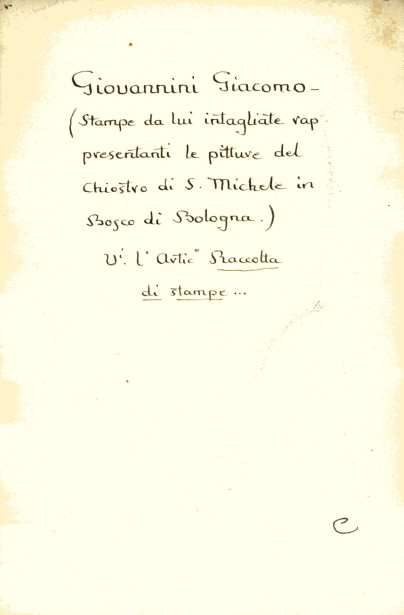 Giovannini Giacomo -
(Stampe da lui intagliate rap
presentanti le pitture del
Chiostro di S. Michele in
Bosco di Bologna.)
Vi. l' Artic° Raccolta
di stampe ...
C